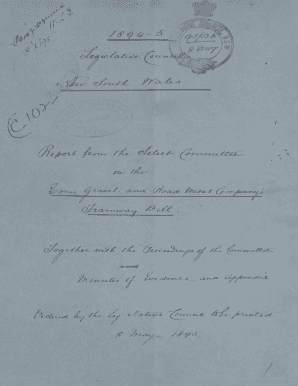 1894-5.
Legislative Council
New South Wales
C102
Report from the Select Committee
on the
Gravel and Road Metal Company's
Tramway Bill.
Together with the Proceedings of the Committee
and
Minutes of Evidence and Appendix
Ordered by the Legislative Council to be printed
8 May 1895